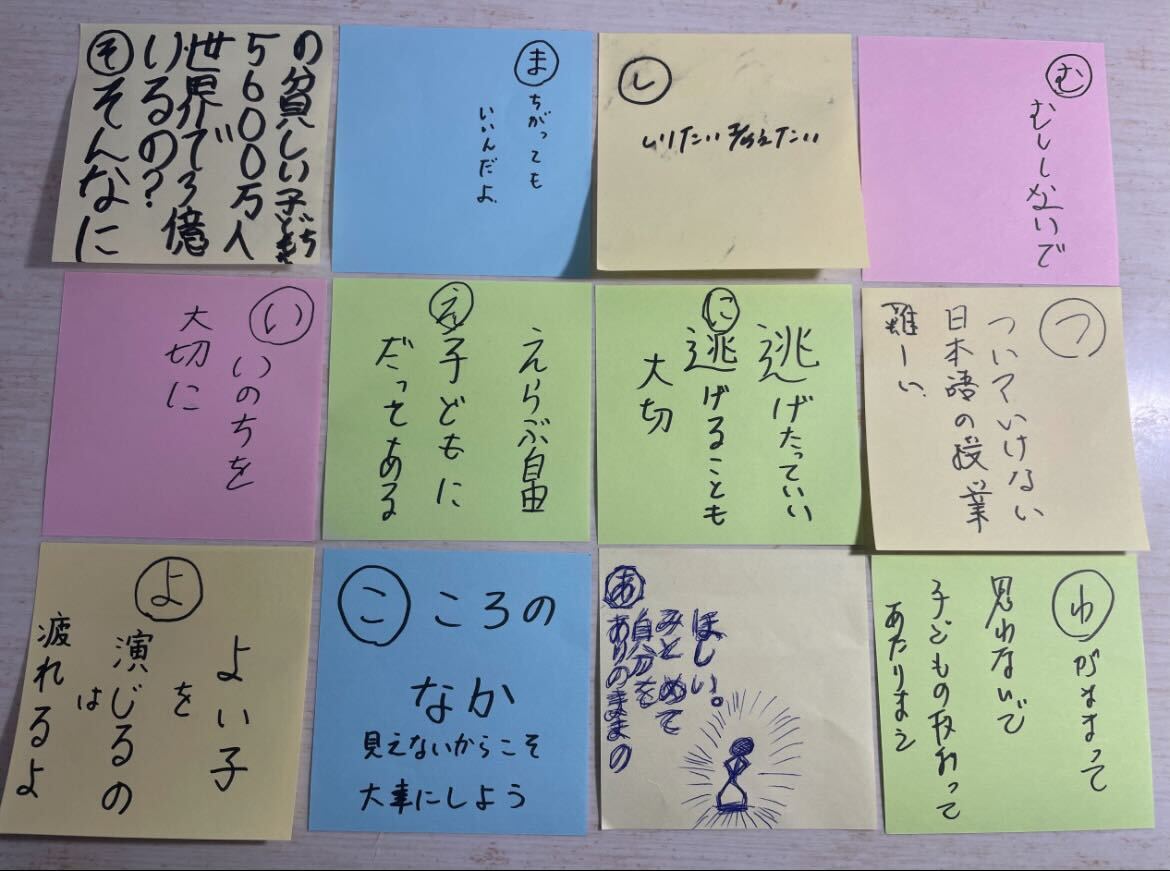 そ そんなに
いるの?
世界で3億
5600万人
の貧しい子どもたち
ま ちがっても
いいんだよ
し
しりたい
む
むししないで
い
いのちを
大切に
え
えらぶ自由
子どもに
だってある
に
逃げたっていい
逃げることも
大切
つ
ついていけない
日本語の授業
難しい
よ
よい子
を
演じるの
は
疲れるよ
こ ころの
なか
見えないからこそ
大事にしよう
あ
ありのままの
自分を
みとめて
ほしい。
わ がままって
思わないで
子どもの って
あたりまえ